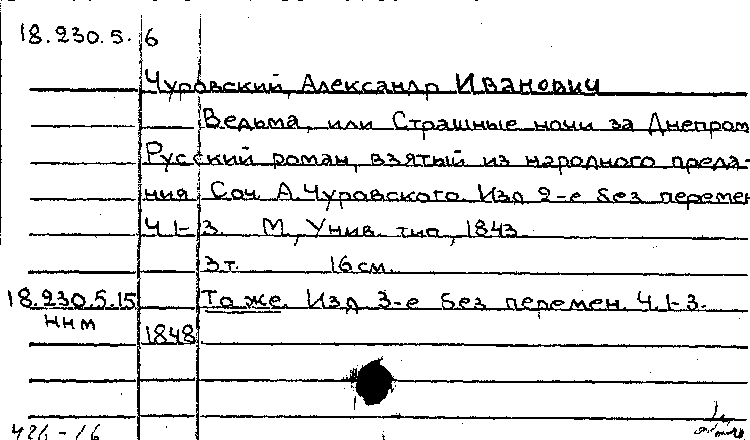 18.230.5.6
Чуровский, Александр Иванович
Ведьма, или Страшные ночи за Днепром
Русский роман, взятый из народного преда-
ния Соч. А. Чуровского. Изд 2-е без перемен
Ч. 1-3. М., Унив. тип, 1843.
3 т. 16 см.
18.230.5.15 То же. Изд 3-е без перемен. Ч. 1-3.
ННМ
1848